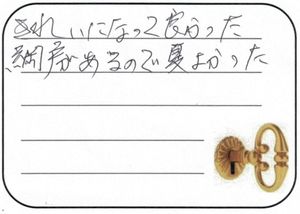 きれいになって良かった
網戸があるので夏よかった